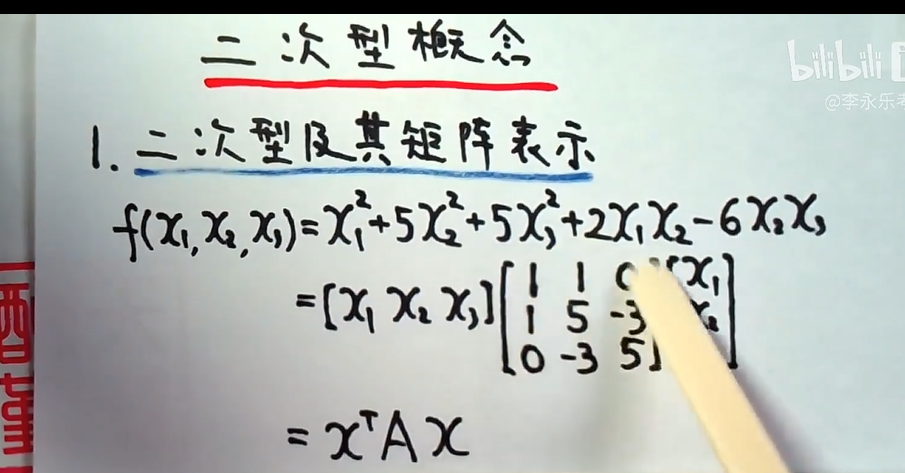 二次型概念
bilibili
@李永乐考
1. 二次型及其矩阵表示
f(x₁,x₂,x₃)=x₁²+5x₂²+5x₃²+2x₁x₂-6x₂x₃
=[x₁ x₂ x₃][1 1 0][x₁]
1 5 -3 x₂
0 -3 5
=xᵀAx
西